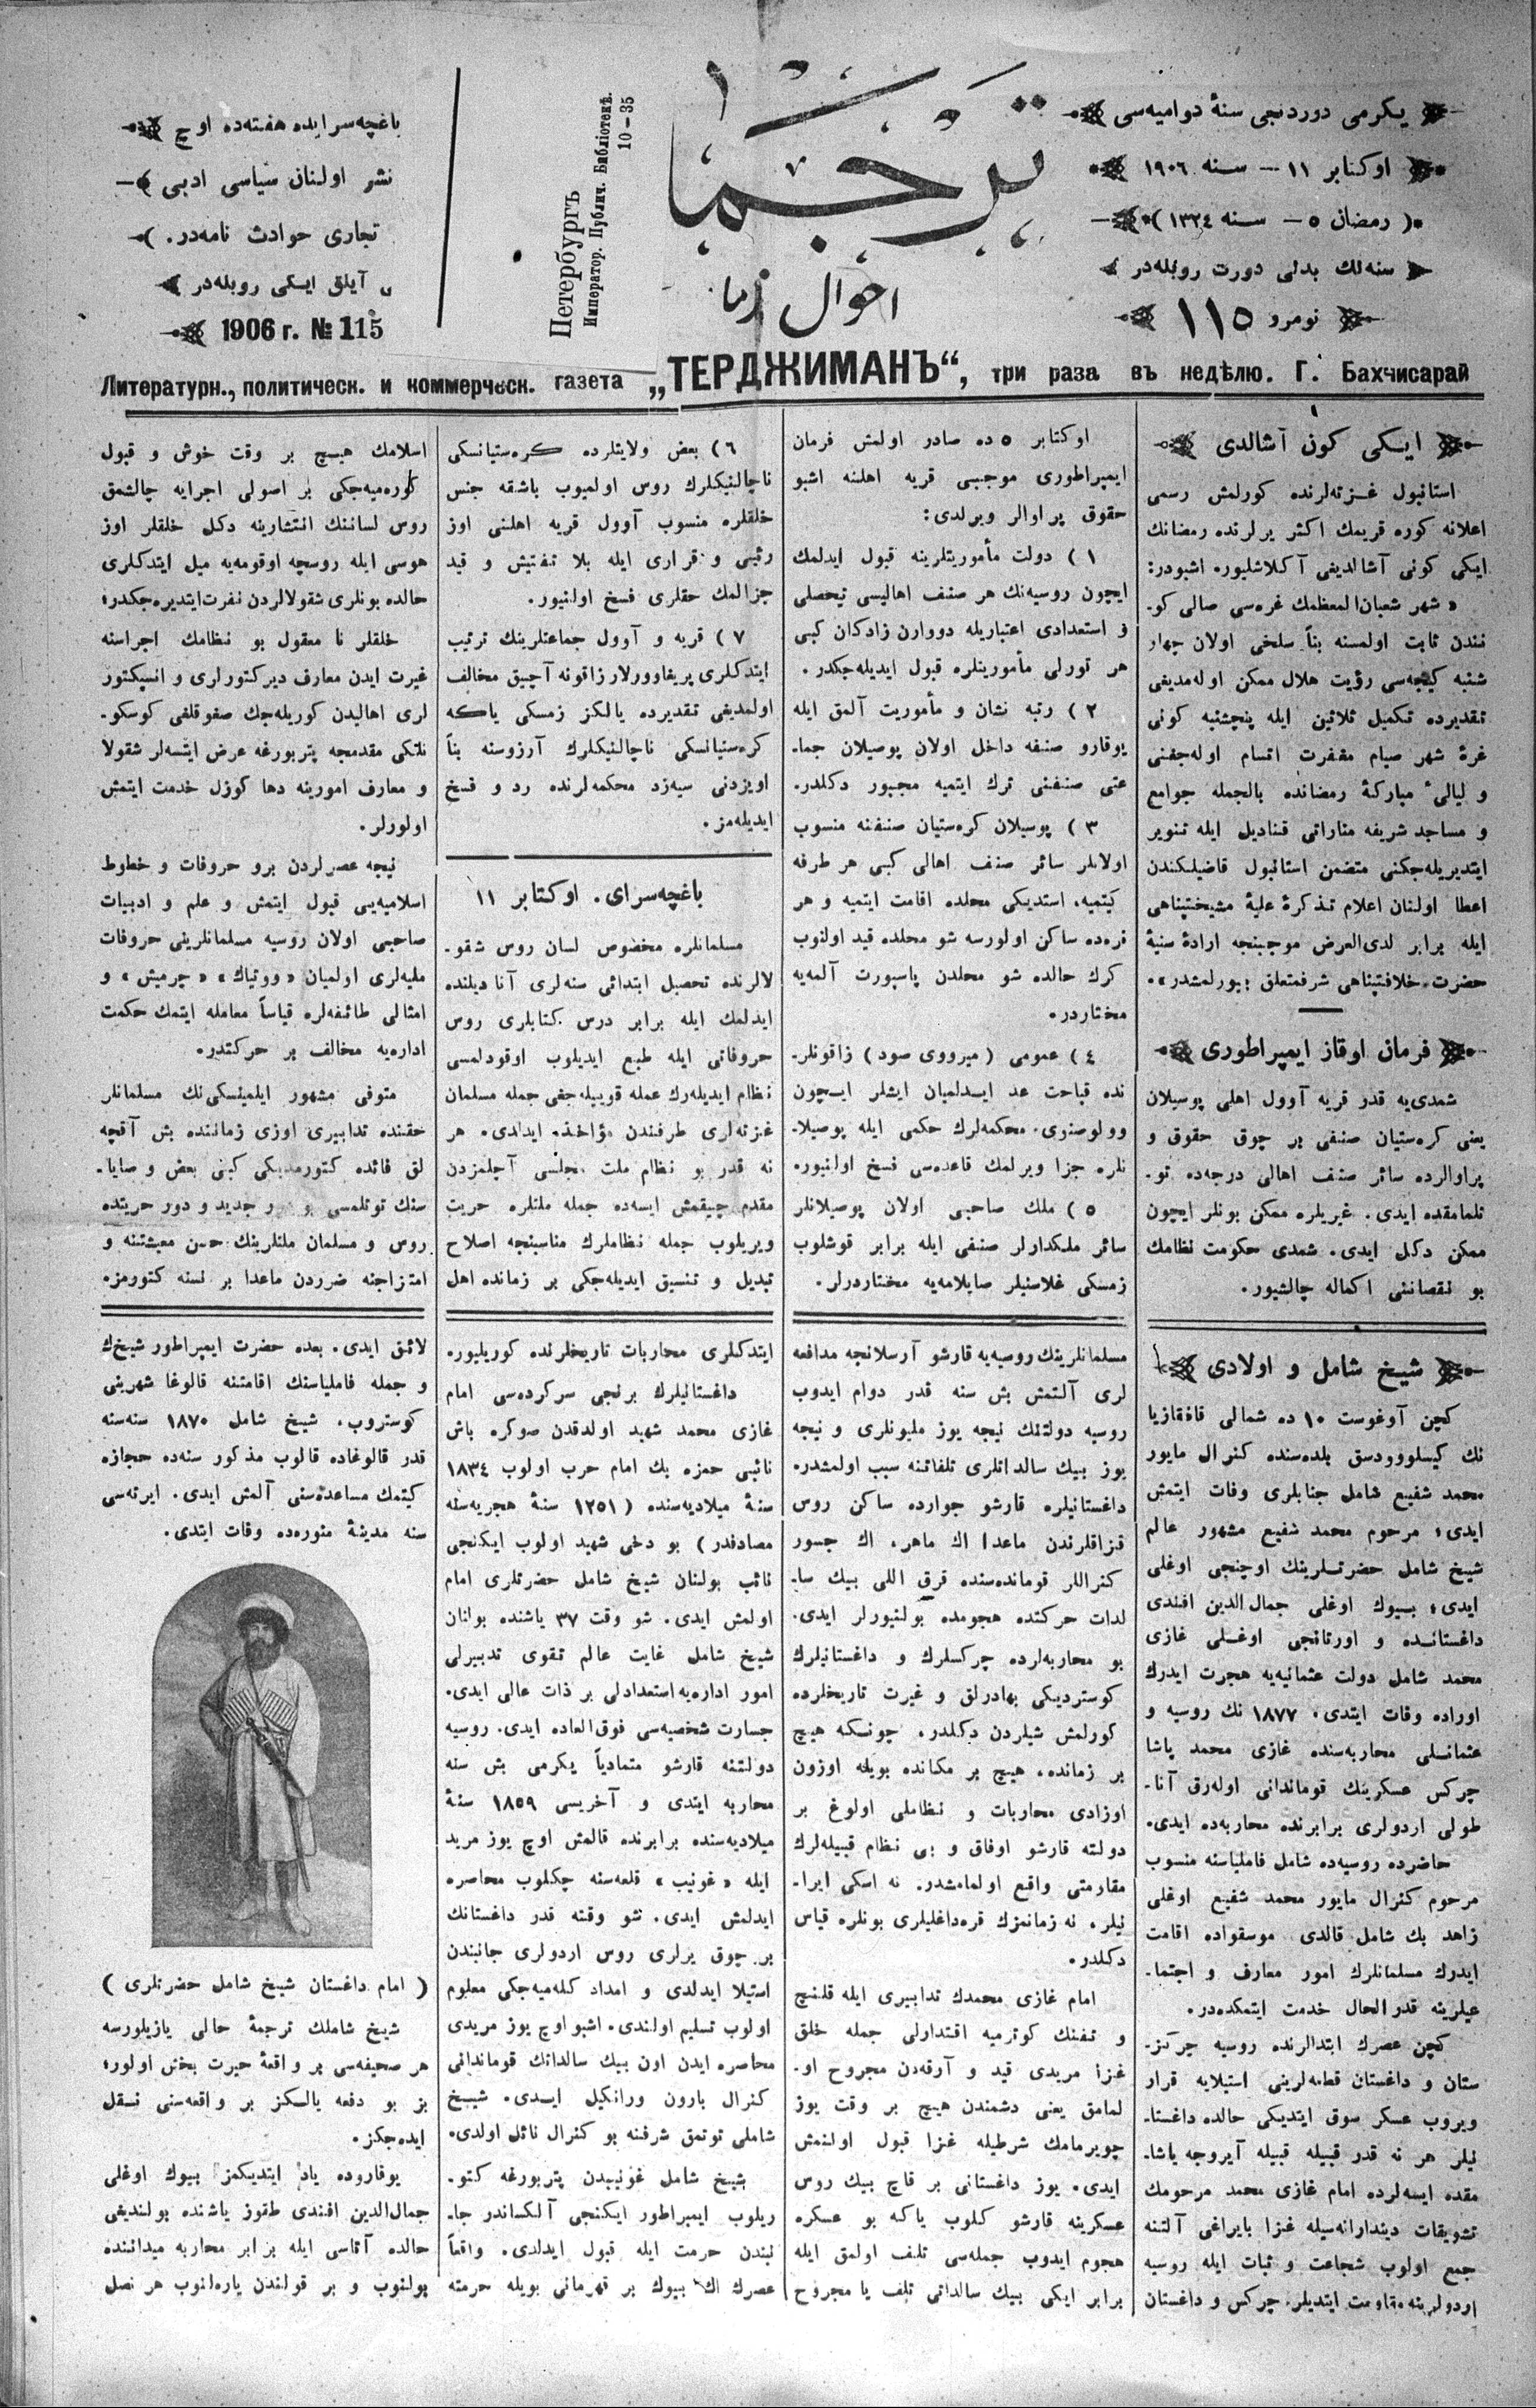 يكرمى دوردنجى سنهٔ دواميه‌سى
اوكتابر ١١ — سنه ١٩٠٦
( رمضان ٥ — سنه ١٣٢٤ )
سنه‌لك بدلى دورت روبله‌در
نومرو ١١٥
ترجمان
احوال زمان
Петербургъ
Император. Публич. Библіотекѣ.
10—35
باغچه‌سرايده هفته‌ده اوچ
نشر اولنان سياسى ادبى
تجارى حوادث نامه‌در.
آيلق ايكى روبله‌در
1906 г. № 115
Литературн., политическ. и коммерческ. газета „ТЕРДЖИМАНЪ“, три раза въ недѣлю. Г. Бахчисарай
ايكى كون آشالدى
استانبول غزته‌لرنده كورلمش رسمى
اعلانه كوره قريمك اكثر يرلرنده رمضانك
ايكى كونى آشالديغى آكلاشليور. اشبودر:
« شهر شعبان‌المعظمك غره‌سى صالى كو-
نندن ثابت اولمسنه بناً سلخى اولان چهار
شنبه كيجه‌سى رؤيت هلال ممكن اوله‌مديغى
تقديرده تكميل ثلاثين ايله پنچشنبه كونى
غرهٔ شهر صيام مغفرت اتسام اوله‌جغنى
و ليالىٔ مباركهٔ رمضانده بالجمله جوامع
و مساجد شريفه مناراتى قناديل ايله تنوير
ايتديريله‌جكنى متضمن استانبول قاضيلكندن
اعطا اولنان اعلام تذكرهٔ عليهٔ مشيختپناهى
ايله برابر لدى‌العرض موجبنجه ارادهٔ سنيهٔ
حضرت خلافتپناهى شرفمتعلق بيورلمشدر».
فرمان اوقاز ايمپراطورى
شمدى‌يه قدر قريه آوول اهلى پوسيلان
يعنى كره‌ستيان صنفى بر چوق حقوق و
پراوالرده سائر صنف اهالى درجه‌ده تو-
تلمامقده ايدى. غيريلره ممكن بونلر ايچون
ممكن دكل ايدى. شمدى حكومت نظامك
بو نقصاننى اكماله چالشيور.
اوكتابر ٥ ده صادر اولمش فرمان
ايمپراطورى موجبى قريه اهلنه اشبو
حقوق پراوالر ويرلدى:
١ ) دولت مأموريتلرينه قبول ايدلمك
ايچون روسيه‌نك هر صنف اهاليسى تحصلى
و استعدادى اعتباريله دووارن زادكان كبى
هر تورلى مأموريتلره قبول ايديله‌جكدر.
٢ ) رتبه نشان و مأموريت آلمق ايله
يوقارو صنفه داخل اولان پوسيلان جما-
عتى صنفنى ترك ايتميه مجبور دكلدر.
٣ ) پوسيلان كره‌ستيان صنفنه منسوب
اولانلر سائر صنف اهالى كبى هر طرفه
كيتميه، استديكى محلده اقامت ايتميه و هر
نره‌ده ساكن اولورسه شو محلده قيد اولنوب
كرك حالده شو محلدن پاسپورت آلمه‌يه
مختاردر.
٤ ) عمومى ( ميرووى صود ) زاقونلر-
نده قباحت عد ايدلميان ايشلر ايچون
وولوصنوى محكمه‌لرك حكمى ايله پوصيلا-
نلره جزا ويرلمك قاعده‌سى فسخ اولنيور.
٥ ) ملك صاحبى اولان پوصيلانلر
سائر ملكدارلر صنفى ايله برابر قوشلوب
زمسكى غلاسنيلر صايلامه‌يه مختاردرلر.
٦ ) بعض ولايتلرده كره‌ستيانسكى
ناچالنيكلرك روس اولميوب باشقه جنس
خلقلره منسوب آوول قريه اهلنى اوز
رئيى و قرارى ايله بلا تفتيش و قيد
جزالمك حقلرى فسخ اولنيور.
٧ ) قريه و آوول جماعتلرينك ترتيب
ايتدكلرى پريغاوورلار زاقونه آچيق مخالف
اولمديغى تقديرده يالكز زمسكى ياكه
كره‌ستيانسكى ناچالنيكلرك آرزوسنه بناً
اويزدنى سيه‌زد محكمه‌لرنده رد و فسخ
ايديله‌مز.
باغچه‌سراى. اوكتابر ١١
مسلمانلره مخصوص لسان روس شقو-
لالرنده تحصيل ابتدائى سنه‌لرى آنا ديلنده
ايدلمك ايله برابر درس كتابلرى روس
حروفاتى ايله طبع ايديلوب اوقودلمسى
نظام ايديله‌رك عمله قوييله‌جغى جمله مسلمان
غزته‌لرى طرفندن مؤاخذه ايدلدى. هر
نه قدر بو نظام ملت مجلسى آچلمزدن
مقدم چيقمش ايسه‌ده جمله ملتلره حريت
ويريلوب جمله نظاملرك مناسبنجه اصلاح
تبديل و تنسيق ايديله‌جكى بر زمانده اهل
اسلامك هيچ بر وقت خوش و قبول
كوره‌ميه‌جكى بر اصولى اجرايه چالشمق
روس لساننك انتشارينه دكل خلقلر اوز
هوسى ايله روسچه اوقومه‌يه ميل ايتدكلرى
حالده بونلرى شقولالردن نفرت ايتديره‌جكدر.
خلقلر نا معقول بو نظامك اجراسنه
غيرت ايدن معارف ديركتورلرى و انسپكتور
لرى اهاليدن كوريله‌جك صغوقلقى كوسكو-
نلكى مقدمجه پتربورغه عرض ايتسه‌لر شقولا
و معارف امورينه دها كوزل خدمت ايتمش
اولورلر.
نيجه عصرلردن برو حروفات و خطوط
اسلاميه‌يى قبول ايتمش و علم و ادبيات
صاحبى اولان روسيه مسلمانلرينى حروفات
مليه‌لرى اولميان «ووتياك» «چرميش» و
امثالى طائفه‌لره قياساً معامله ايتمك حكمت
اداره‌يه مخالف بر حركتدر.
متوفى مشهور ايلمينسكى‌نك مسلمانلر
حقنده تدابيرى اوزى زماننده بش آقچه
لق فائده كتورمديكى كبى بعض و صايا-
سنك توتلمسى بو جديد و دور حريتده
روس و مسلمان ملتلرينك حسن معيشتنه و
امتزاجنه ضرردن ماعدا بر نسنه كتورمز.
شيخ شامل و اولادى
كچن آوغوست ١٠ ده شمالى قافقازيا
نك كيسلوودسق بلده‌سنده كنرال مايور
محمد شفيع شامل جنابلرى وفات ايتمش
ايدى؛ مرحوم محمد شفيع مشهور عالم
شيخ شامل حضرتلرينك اوچنجى اوغلى
ايدى؛ بيوك اوغلى جمال‌الدين افندى
داغستانده و اورتانجى اوغلى غازى
محمد شامل دولت عثمانيه‌يه هجرت ايدرك
اوراده وفات ايتدى. ١٨٧٧ نك روسيه و
عثمانلى محاربه‌سنده غازى محمد پاشا
چركس عسكرينك قوماندانى اوله‌رق آنا-
طولى اردولرى برابرنده محاربه‌ده ايدى.
حاضرده روسيه‌ده شامل فامليا‌سنه منسوب
مرحوم كنرال مايور محمد شفيع اوغلى
زاهد بك شامل قالدى موسقواده اقامت
ايدرك مسلمانلرك امور معارف و اجتما-
عيلرينه قدر الحال خدمت ايتمكده‌در.
كچن عصرك ابتدالرنده روسيه چركز-
ستان و داغستان قطعه‌لرينى استيلايه قرار
ويروب عسكر سوق ايتديكى حالده داغستا-
نيلر هر نه قدر قبيله قبيله آيروجه ياشا-
مقده ايسه‌لرده امام غازى محمد مرحومك
تشويقات ديندارانه‌سيله غزا بايراغى آلتنه
جمع اولوب شجاعت و ثبات ايله روسيه
اردولرينه مقاومت ايتديلر. چركس و داغستان
مسلمانلرينك روسيه‌يه قارشو آرسلانجه مدافعه
لرى آلتمش بش سنه قدر دوام ايدوب
روسيه دولتنك نيجه يوز مليونلرى و نيجه
يوز بيك سالداتلرى تلفاتنه سبب اولمشدر.
داغستانيلره قارشو جوارده ساكن روس
قزاقلرندن ماعدا اك ماهر، اك جسور
كنراللر قومانده‌سنده قرق اللى بيك سا-
لدات حركتده هجومده بولنيورلر ايدى.
بو محاربه‌لرده چركسلرك و داغستانيلرك
كوسترديكى بهادرلق و غيرت تاريخلرده
كورلمش شيلردن دكلدر. چونكه هيچ
بر زمانده، هيچ بر مكانده بويله اوزون
اوزادى محاربات و نظاملى اولوغ بر
دولته قارشو اوفاق و بى نظام قبيله‌لرك
مقارمتى واقع اولمامشدر. نه اسكى ايرا-
نيلر، نه زمانمزك قره‌داغليلرى بونلره قياس
دكلدر.
امام غازى محمدك تدابيرى ايله قلنچ
و تفنك كوترميه اقتدارلى جمله خلق
غزا مريدى قيد و آرقه‌دن مجروح او-
لمامق يعنى دشمندن هيچ بر وقت يوز
چويرمامك شرطيله غزا قبول اولنمش
ايدى. يوز داغستانى بر قاچ بيك روس
عسكرينه قارشو كلوب ياكه بو عسكره
هجوم ايدوب جمله‌سى تلف اولمق ايله
برابر ايكى بيك سالداتى تلف يا مجروح
ايتدكلرى محاربات تاريخلرنده كوريليور.
داغستانيلرك برنجى سركرده‌سى امام
غازى محمد شهيد اولدقدن صوكره باش
نائبى حمزه بك امام حرب اولوب ١٨٣٤
سنهٔ ميلاديه‌سنده ( ١٢٥١ سنهٔ هجريه‌سنه
مصادفدر ) بو دخى شهيد اولوب ايكنجى
نائب بولنان شيخ شامل حضرتلرى امام
اولمش ايدى. شو وقت ٣٧ ياشنده بولنان
شيخ شامل غايت عالم تقوى تدبيرلى
امور اداره‌يه استعدادلى بر ذات عالى ايدى.
جسارت شخصيه‌سى فوق‌العاده ايدى. روسيه
دولتنه قارشو متمادياً يكرمى بش سنه
محاربه ايتدى و آخريسى ١٨٥٩ سنهٔ
ميلاديه‌سنده برابرنده قالمش اوچ يوز مريد
ايله «غونيب» قلعه‌سنه چكلوب محاصره
ايدلمش ايدى. شو وقته قدر داغستانك
بر چوق يرلرى روس اردولرى جانبندن
استيلا ايدلدى و امداد كله‌ميه‌جكى معلوم
اولوب تسليم اولندى. اشبو اوچ يوز مريدى
محاصره ايدن اون بيك سالداتك قوماندانى
كنرال بارون ورانكيل ايدى. شيخ
شاملى توتمق شرفنه بو كنرال نائل اولدى.
شيخ شامل غونيبدن پتربورغه كتو-
ريلوب ايمپراطور ايكنجى آلكساندر جا-
نبندن حرمت ايله قبول ايدلدى. واقعاً
عصرك اك بيوك بر قهرمانى بويله حرمته
لائق ايدى. بعده حضرت ايمپراطور شيخك
و جمله فاملياسنك اقامتنه قالوغا شهرينى
كوستروب، شيخ شامل ١٨٧٠ سنه‌سنه
قدر قالوغاده قالوب مذكور سنه‌ده حجازه
كيتمك مساعده‌سنى آلمش ايدى. ايرته‌سى
سنه مدينهٔ منوره‌ده وفات ايتدى.
( امام داغستان شيخ شامل حضرتلرى )
شيخ شاملك ترجمهٔ حالى يازيلورسه
هر صحيفه‌سى بر واقعهٔ حيرت بخش اولور؛
بز بو دفعه يالكز بر واقعه‌سنى نقل
ايده‌جكز.
يوقاروده ياد ايتديكمز بيوك اوغلى
جمال‌الدين افندى طقوز ياشنده بولنديغى
حالده آتاسى ايله برابر محاربه ميداننده
بولنوب و بر قولندن ياره‌لنوب هر نصل